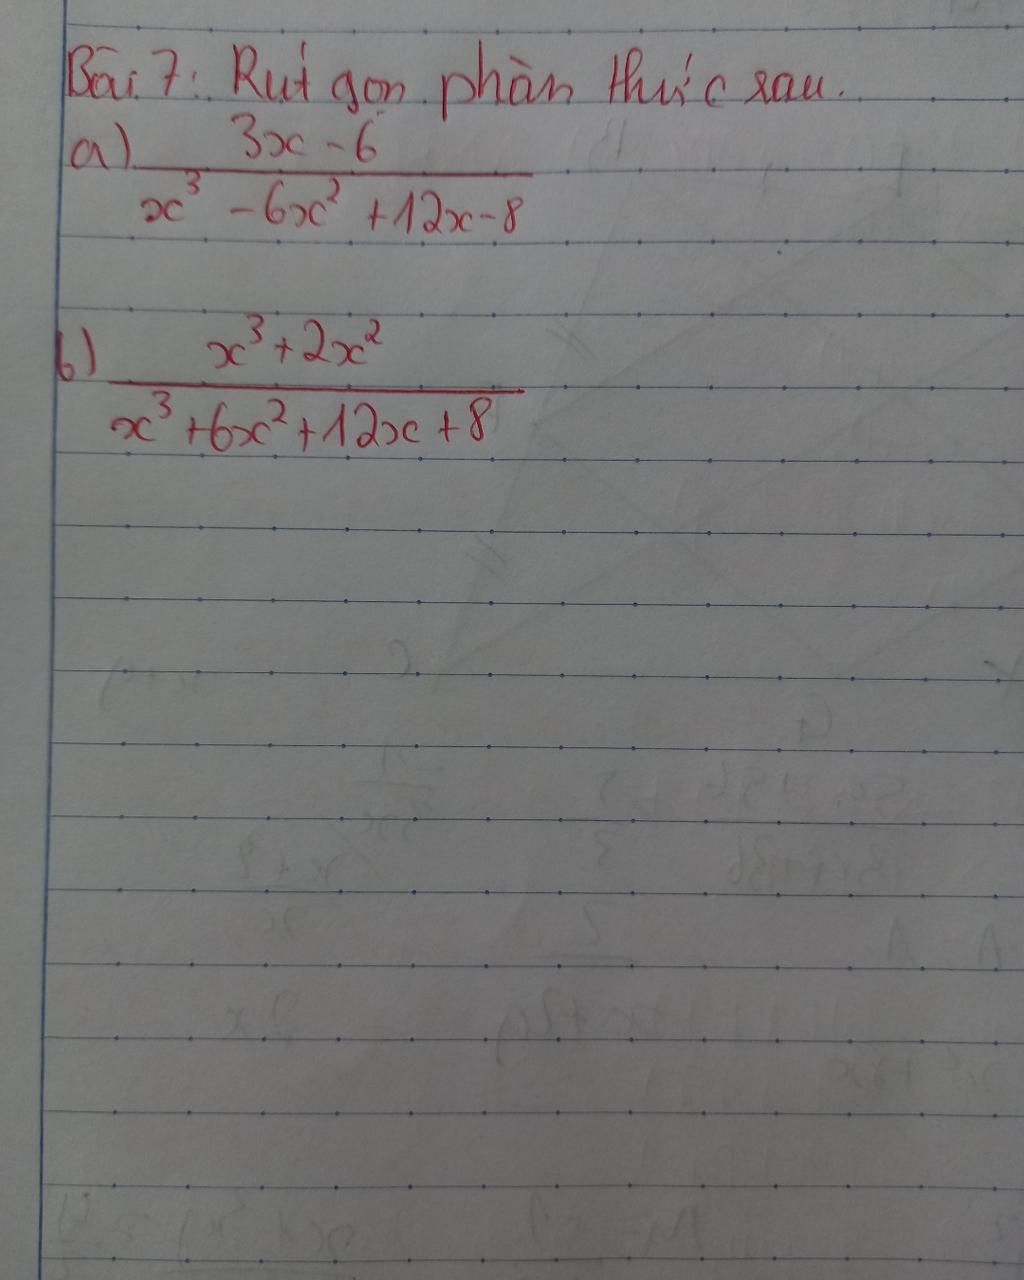 Bài 7: Rút gọn phân thức sau.
a) 3x - 6
x³ - 6x² + 12x - 8
b) x³ + 2x²
x³ + 6x² + 12x + 8